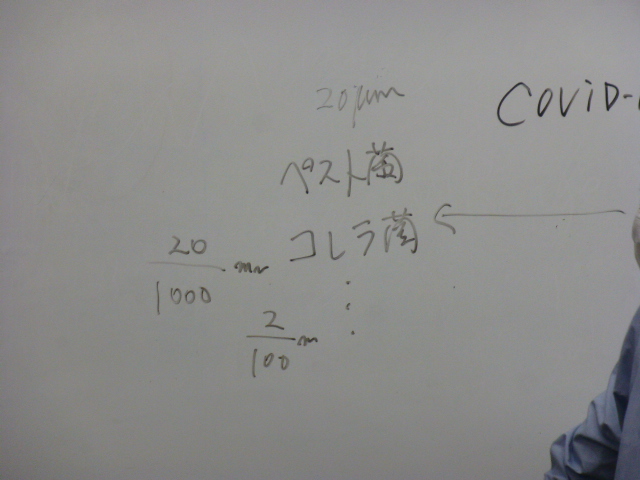 20μm
COVID-
ペスト菌
コレラ菌
20
1000
mm
⋮
2
100
m